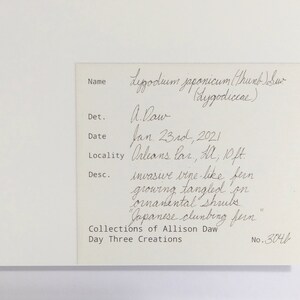 Name Lygodium japonicum (Thunb.) Sw
(Lygodiceae)
Det. A. Daw
Date Jan 23rd, 2021
Locality Orleans Par, LA, 10 ft.
Desc. invasive vine-like fern
growing tangled on
ornamental shrubs
"Japanese climbing fern"
Collections of Allison Daw
Day Three Creations No. 3046